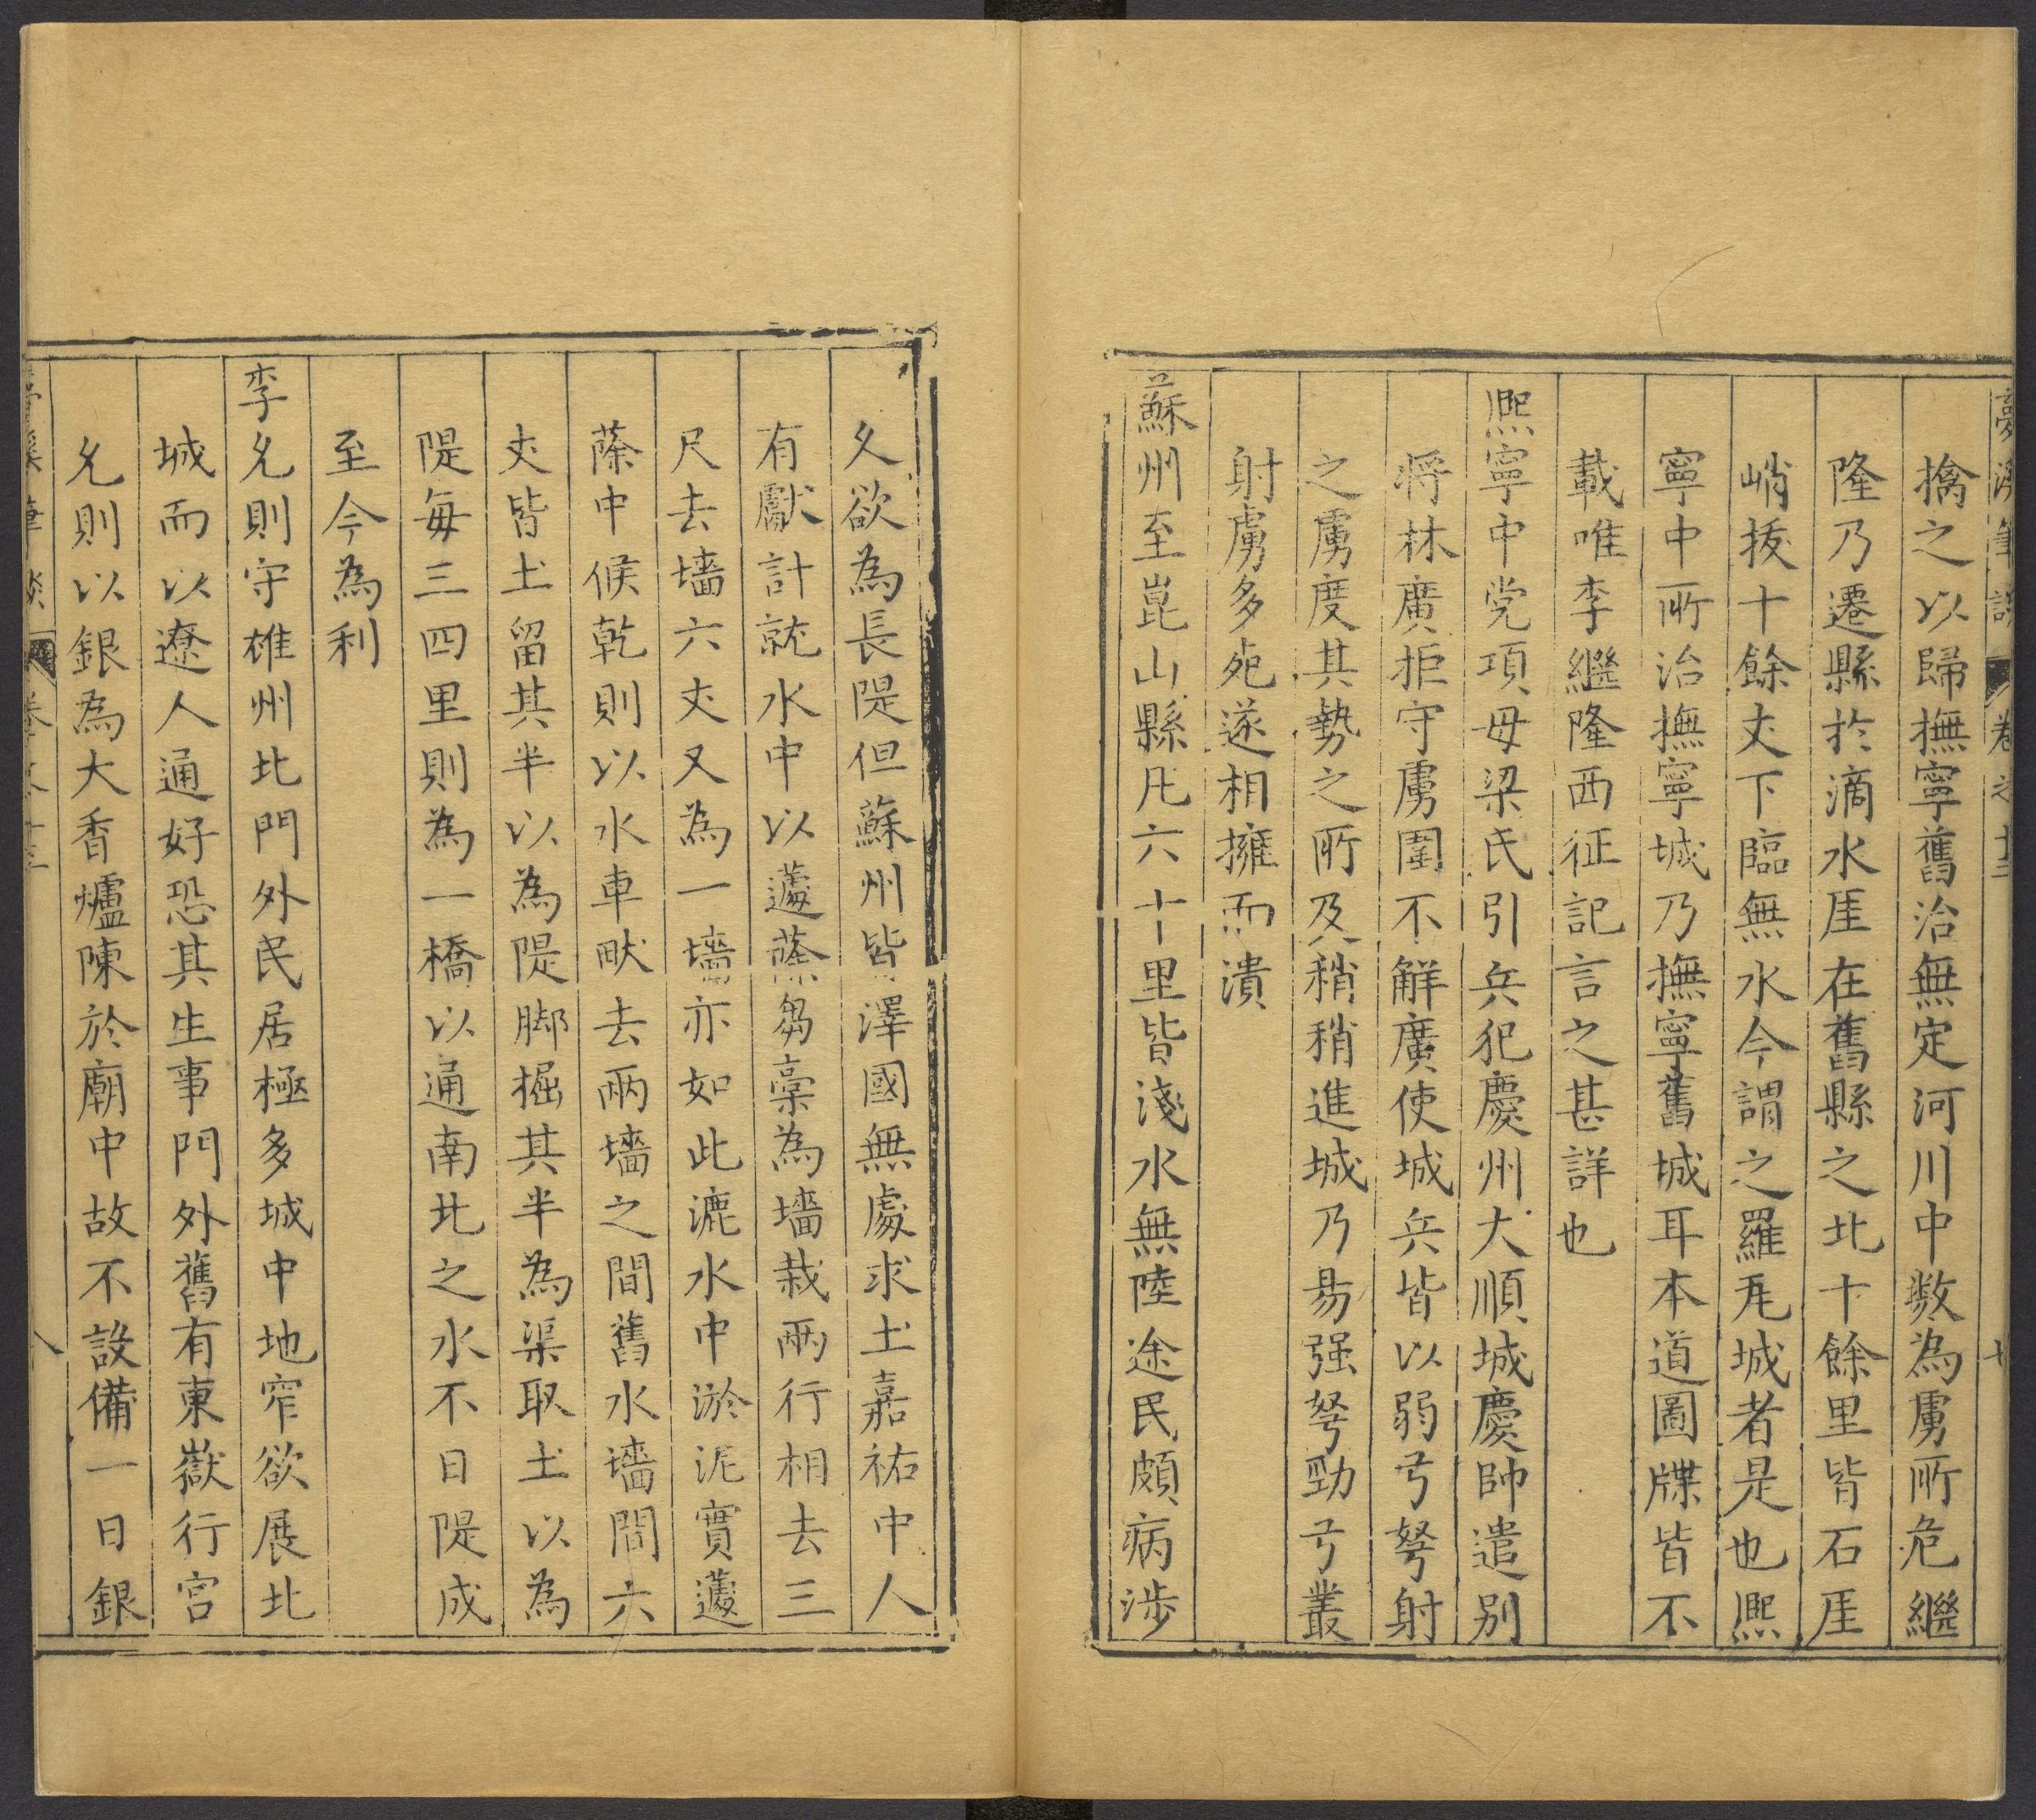 夢溪筆談 卷之十三 七
擒之以歸撫寧舊治無定河川中數為虜所危繼
隆乃遷縣於滴水厓在舊縣之北十餘里皆石厓
峭拔十餘丈下臨無水今謂之羅兀城者是也熈
寧中所治撫寧城乃撫寧舊城耳本道圖牒皆不
載唯李繼隆西征記言之甚詳也
熈寧中党項母梁氏引兵犯慶州大順城慶帥遣别
將林廣拒守虜圍不解廣使城兵皆以弱弓弩射
之虜度其勢之所及稍稍進城乃易强弩勁弓叢
射虜多死遂相擁而潰
蘇州至崑山縣凡六十里皆淺水無陸途民頗病涉
久欲為長隄但蘇州皆澤國無處求土嘉祐中人
有獻計就水中以蘧蒢芻稾為墻栽兩行相去三
尺去墻六丈又為一墻亦如此漉水中淤泥實蘧
蒢中候乾則以水車畎去兩墻之間舊水墻間六
丈皆土留其半以為隄脚掘其半為渠取土以為
隄每三四里則為一橋以通南北之水不日隄成
至今為利
李允則守雄州北門外民居極多城中地窄欲展北
城而以遼人通好恐其生事門外舊有東嶽行宫
允則以銀為大香爐陳於廟中故不設備一日銀
夢溪筆談 卷之十三 八